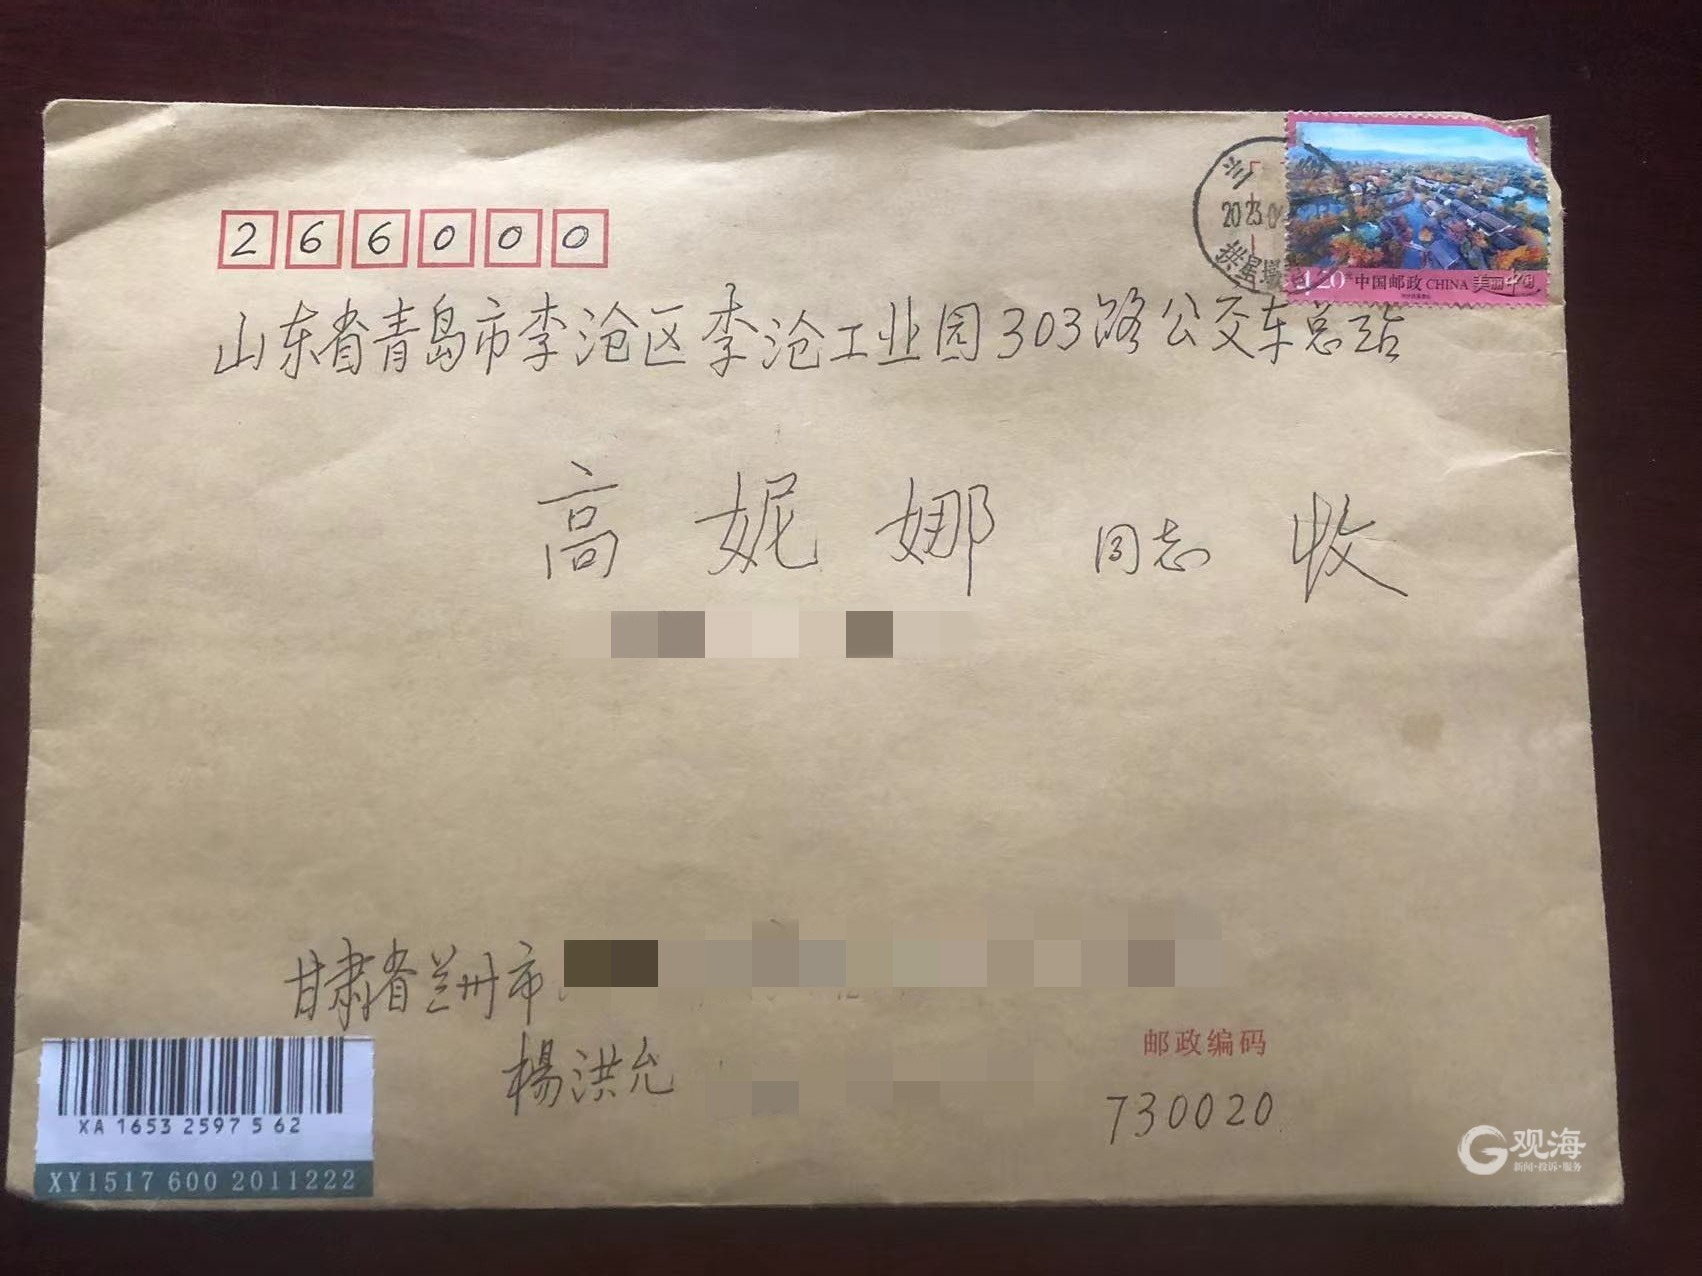 266000
兰
2023.0
拱星墩
1.20元 中国邮政 CHINA 美丽中国
山东省青岛市李沧区李沧工业园303路公交车总站
高妮娜 同志 收
甘肃省兰州市
楊洪允
邮政编码
730020
XA 1653 2597 5 62
XY1517 600 2011222
观海
新闻·投诉·服务